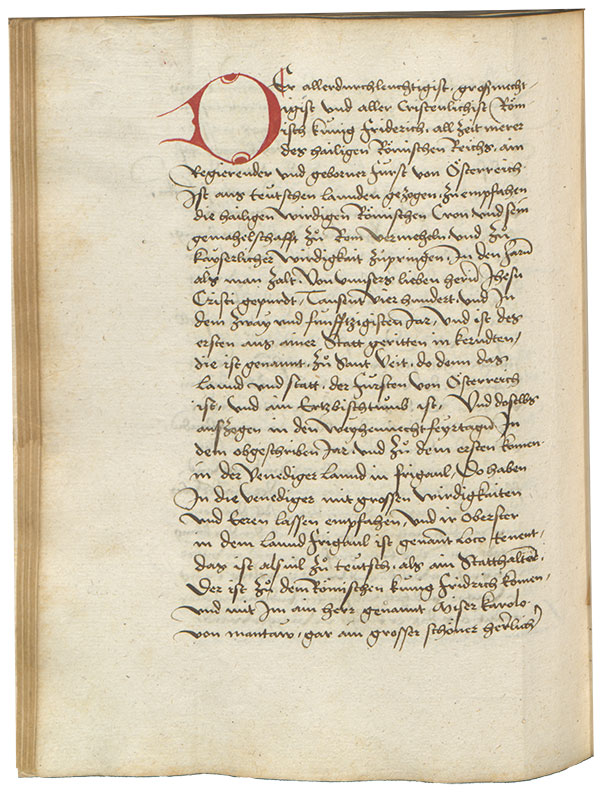 DEr allerdurchleuchtigist, grosmecht-
igist und aller Cristenlichist Röm-
isch kunig Friderich, all Zeit merer
des hailigen Römischen Reichs, ain
Regierender und geborner Furst von Österreich
Ist aus teutschen lannden gezogen, zu empfahen
die hailigen wirdigen Römischen Cron und sein
gemahelschafft zů Rom vermeheln und zů
kayserlicher wirdigkait zupringen, In den Jarn
als man zalt, Von unnsers lieben herrn Jhesu
Cristi gepurdt, Tausent vier hundert, und In
dem zway und funfftzigisten Jar, Und ist des
ersten aus ainer Statt geritten in kerndten,
die ist genannt, zů Sant Veit, do denn das
lannd und statt, der Fursten von Österreich
ist, und ain Ertzbischtumb ist, Und doselbs
auszogen in den Weyhennecht feyrtagen In
dem obgeschriben Jar, und zů dem ersten komen
in der Venediger lannd in Frigaul, Do haben
In die Venediger mit grossen wirdigkaiten
und Eeren lassen empfahen, und ir Oberster
in dem lannd Frigaul ist genannt Loco tenent,
das ist alsuil zů teutsch, als ain Statthalter,
Der ist zů dem Römischen kunig Fridrich komen,
und mit Im ain herr genannt Miser karolo
von mantaw, gar ain grosser schöner herrlich